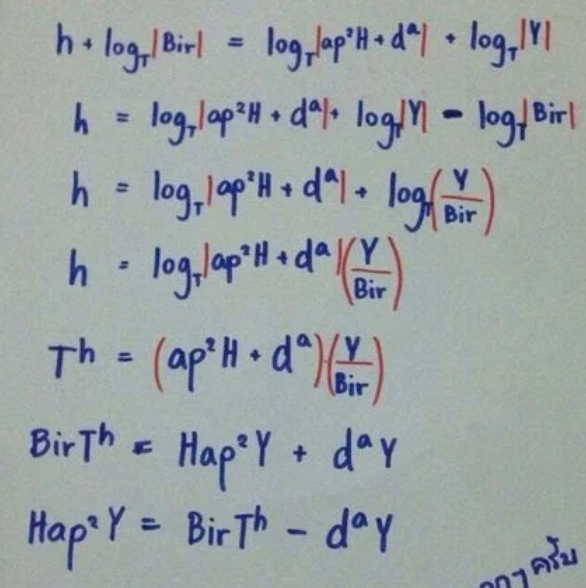 h + log_T|Bir| = log_T|ap²H + dᵃ| + log_T|Y|
h = log_T|ap²H + dᵃ| + log_T|Y| - log_T|Bir|
h = log_T|ap²H + dᵃ| + log_T(Y/Bir)
h = log_T|ap²H + dᵃ|(Y/Bir)
Tʰ = (ap²H + dᵃ)(Y/Bir)
BirTʰ = Hap²Y + dᵃY
Hap²Y = BirTʰ - dᵃY
ครับ